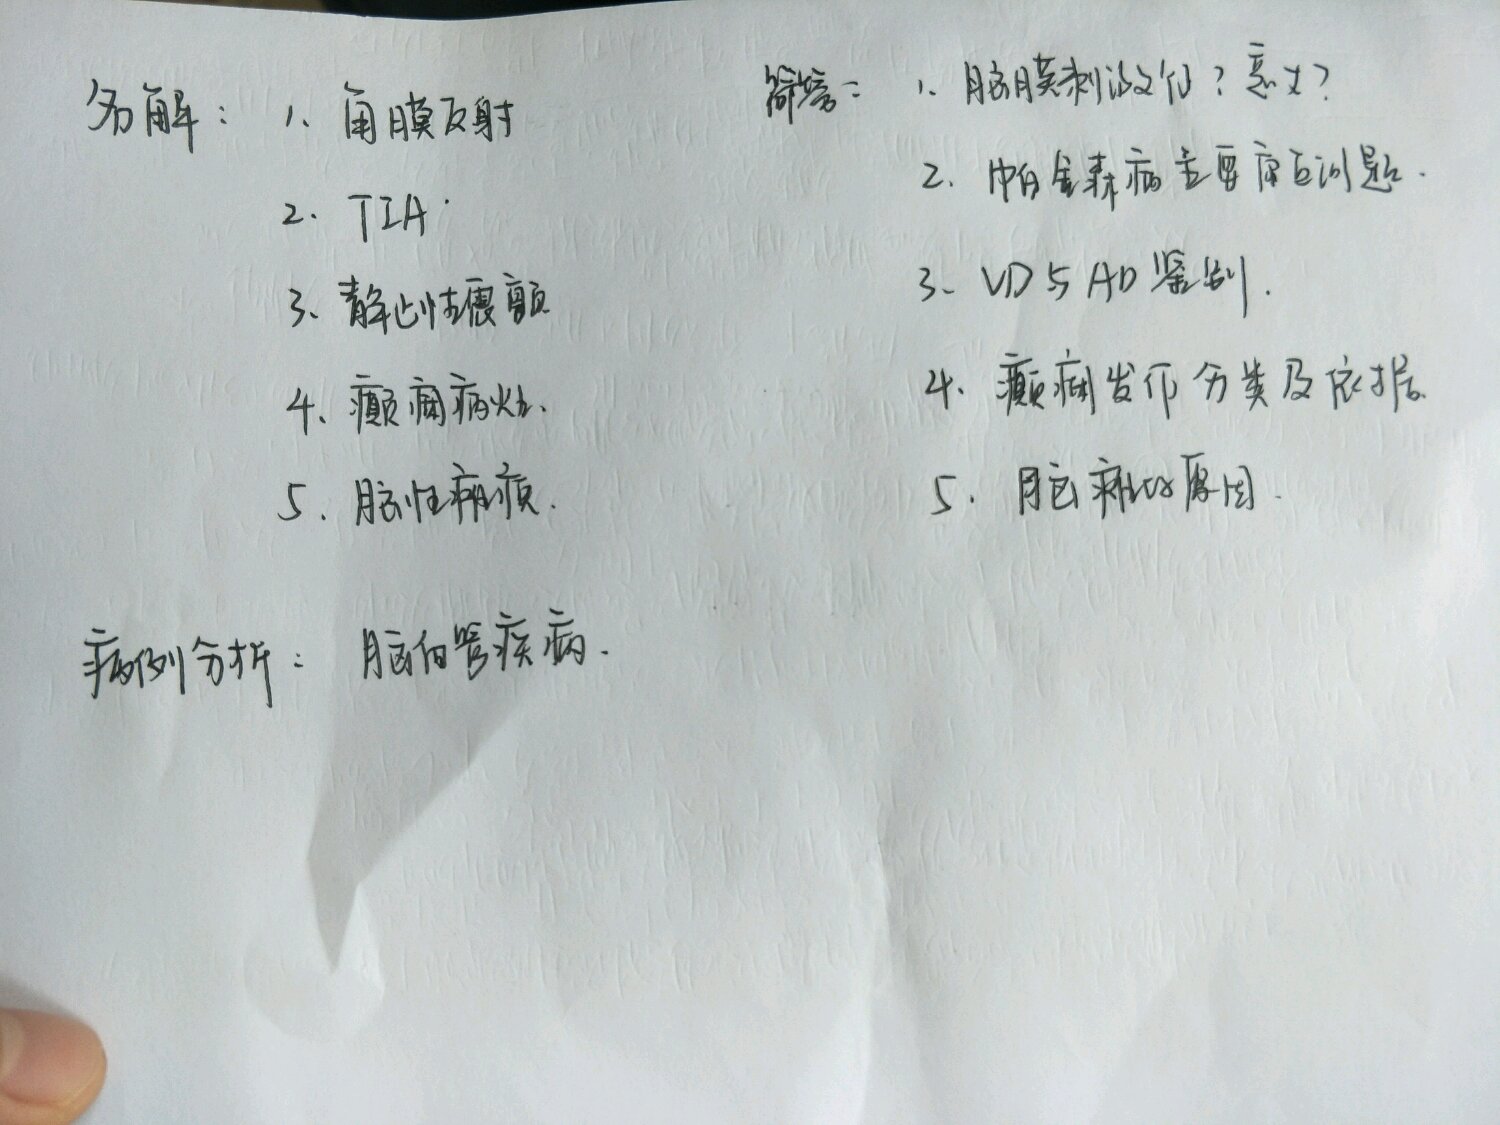 名解： 1、角膜反射
2. TIA.
3、静止性震颤
4、癫痫病灶.
5、脑性瘫痪.
病例分析： 脑血管疾病.
简答： 1、脑膜刺激征？意义？
2. 帕金森病主要康复问题.
3、VD与AD鉴别.
4、癫痫发作分类及依据.
5. 脑瘫的原因.